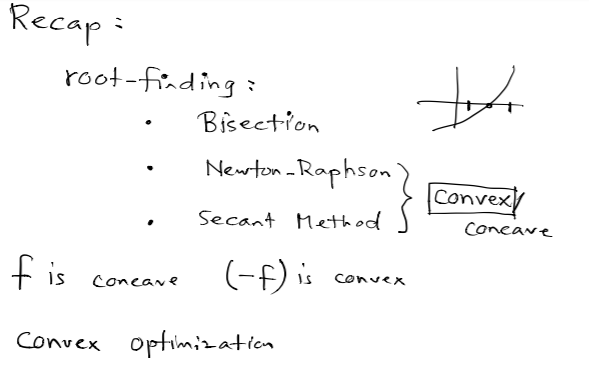 Recap:
root-finding:
• Bisection
• Newton-Raphson
• Secant Method
Convex/
concave
f is concave (-f) is convex
Convex optimization